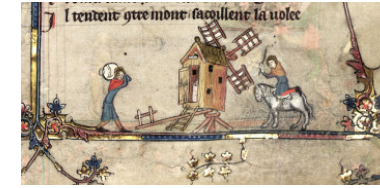 I tendent ꝯtre mont sacoillent la uolee